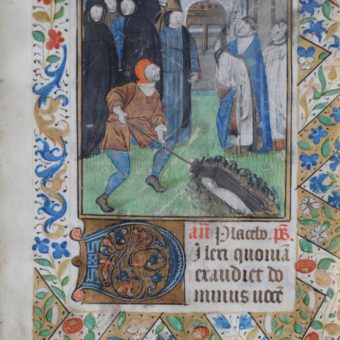 añ Placebo. ps̄.
Dilexi quoniā
exaudiet do
minus vocē